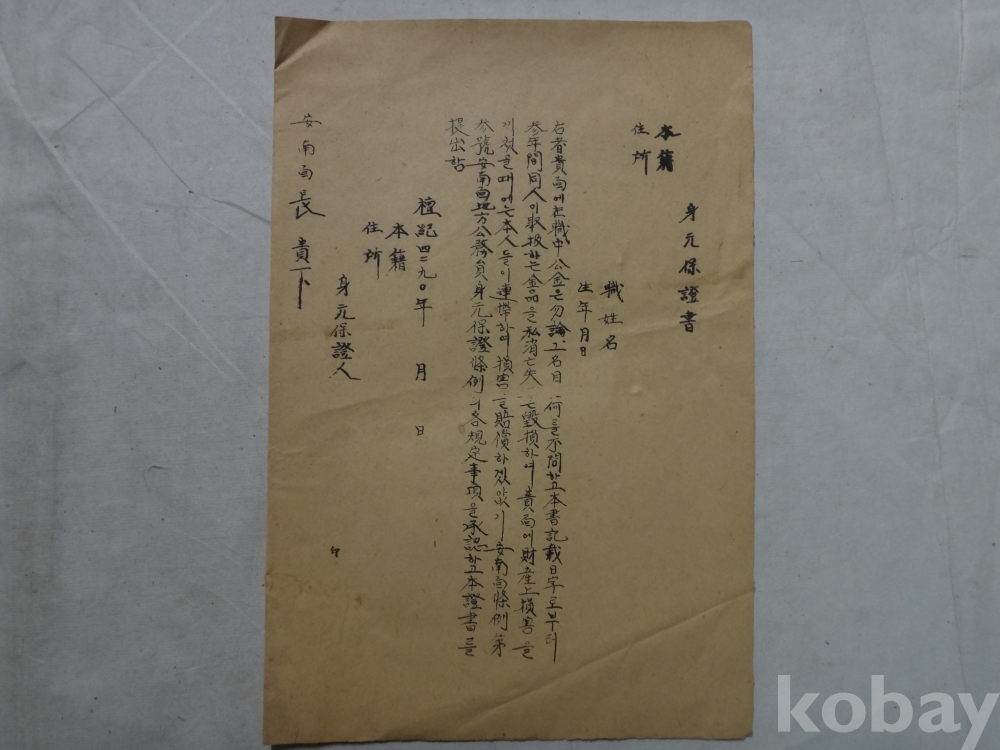 身元保證書
本籍
住所
職姓名
生年月日
右者貴面에在職中公金은勿論그名目 何를不問하고本書記載日字로부터
參年間同人이取扱하는金品을私消亡失 는毁損하여貴面에財産上損害을
기첬을때에는本人들이連帶하여損害를賠償하겠않기安南面條例第
參號安南面地方公務員身元保證條例의各規定事項을承認하고本證書를
提出함
檀紀四二九〇年 月 日
本籍
住所
身元保證人 印
安南面長 貴下
kobay